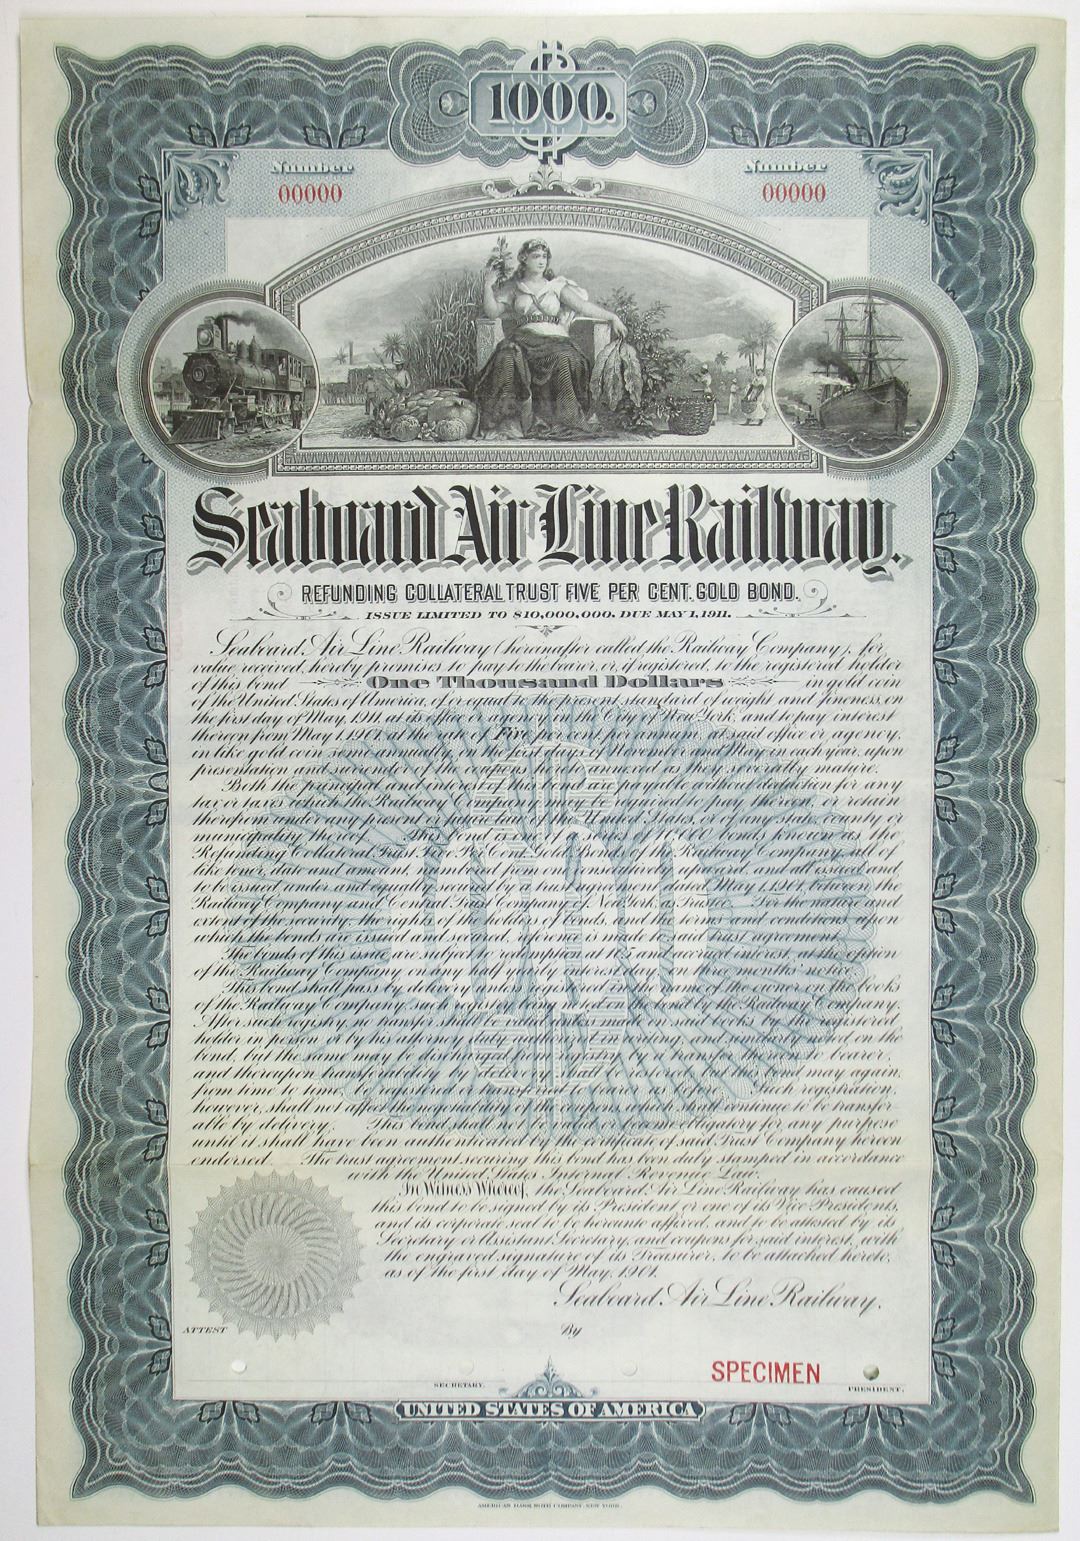 $1000.
Number Number
00000 00000
Seaboard Air Line Railway.
REFUNDING COLLATERAL TRUST FIVE PER CENT. GOLD BOND.
ISSUE LIMITED TO $10,000,000. DUE MAY 1, 1911.
Seaboard Air Line Railway (hereinafter called the Railway Company), for
value received, hereby promises to pay to the bearer, or, if registered, to the registered holder
of this bond One Thousand Dollars in gold coin
of the United States of America, of or equal to the present standard of weight and fineness, on
the first day of May, 1911, at its office or agency in the City of New York, and to pay interest
thereon from May 1, 1901, at the rate of Five per cent. per annum, at said office or agency,
in like gold coin, semi-annually, on the first days of November and May, in each year, upon
presentation and surrender of the coupons hereto annexed as they severally mature.
Both the principal and interest of this bond are payable without deduction for any
tax or taxes which the Railway Company may be required to pay thereon, or retain
therefrom under any present or future law of the United States, or of any state, county or
municipality thereof. This bond is one of a series of 10,000 bonds known as the
Refunding Collateral Trust Five Per Cent. Gold Bonds of the Railway Company, all of
like tenor, date and amount, numbered from one consecutively upward, and all issued and
to be issued under and equally secured by a trust agreement dated May 1, 1901, between the
Railway Company and Central Trust Company of New York, as Trustee. For the nature and
extent of the security, the rights of the holders of bonds, and the terms and conditions upon
which the bonds are issued and secured, reference is made to said trust agreement.
The bonds of this issue are subject to redemption at 105 and accrued interest, at the option
of the Railway Company on any half yearly interest day, on three months' notice.
This bond shall pass by delivery unless registered in the name of the owner on the books
of the Railway Company, such registry being noted on the bond by the Railway Company.
After such registry, no transfer shall be valid unless made on said books by the registered
holder in person or by his attorney duly authorized in writing, and similarly noted on the
bond, but the same may be discharged from registry by a transfer thereon to bearer,
and thereupon transferability by delivery shall be restored; but this bond may again,
from time to time, be registered or transferred to bearer as before. Such registration,
however, shall not affect the negotiability of the coupons, which shall continue to be transfer-
able by delivery. This bond shall not be valid or become obligatory for any purpose
until it shall have been authenticated by the certificate of said Trust Company hereon
endorsed. The trust agreement securing this bond has been duly stamped in accordance
with the United States Internal Revenue Law.
In Witness Whereof, the Seaboard Air Line Railway has caused
this bond to be signed by its President or one of its Vice Presidents,
and its corporate seal to be hereunto affixed, and to be attested by its
Secretary or Assistant Secretary, and coupons for said interest, with
the engraved signature of its Treasurer, to be attached hereto,
as of the first day of May, 1901.
Seaboard Air Line Railway,
ATTEST By
SPECIMEN
SECRETARY. PRESIDENT.
UNITED STATES OF AMERICA
AMERICAN BANK NOTE COMPANY, NEW YORK.